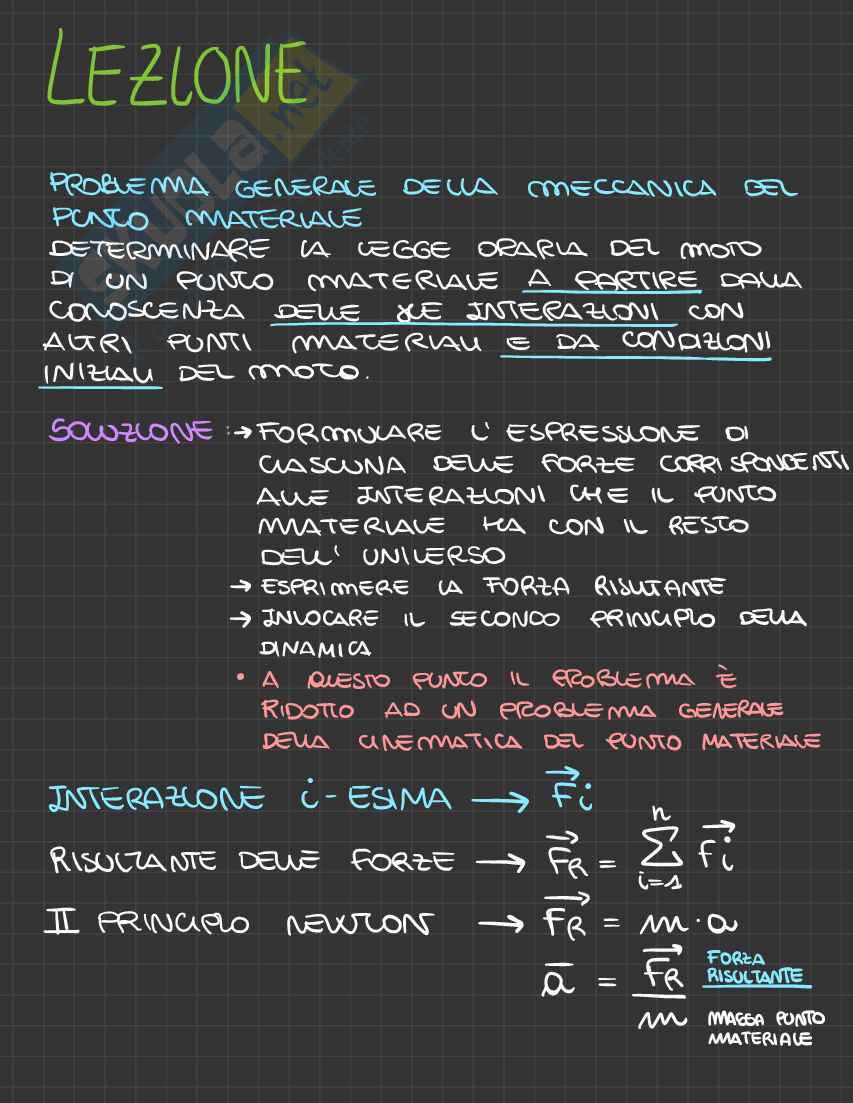 LEZIONE
SKUOLA.net
PROBLEMA GENERALE DELLA MECCANICA DEL
PUNTO MATERIALE
DETERMINARE LA LEGGE ORARIA DEL MOTO
DI UN PUNTO MATERIALE A PARTIRE DALLA
CONOSCENZA DELLE SUE INTERAZIONI CON
ALTRI PUNTI MATERIALI E DA CONDIZIONI
INIZIALI DEL MOTO.
SOLUZIONE : → FORMULARE L' ESPRESSIONE DI
CIASCUNA DELLE FORZE CORRISPONDENTI
ALLE INTERAZIONI CHE IL PUNTO
MATERIALE HA CON IL RESTO
DELL' UNIVERSO
→ ESPRIMERE LA FORZA RISULTANTE
→ INVOCARE IL SECONDO PRINCIPIO DELLA
DINAMICA
• A QUESTO PUNTO IL PROBLEMA È
RIDOTTO AD UN PROBLEMA GENERALE
DELLA CINEMATICA DEL PUNTO MATERIALE
INTERAZIONE i-ESIMA → F⃗i
RISULTANTE DELLE FORZE → F⃗R = Σ i=1 n F⃗i
II PRINCIPIO NEWTON → F⃗R = m · a
a̅ = F⃗R / m
FORZA
RISULTANTE
MASSA PUNTO
MATERIALE